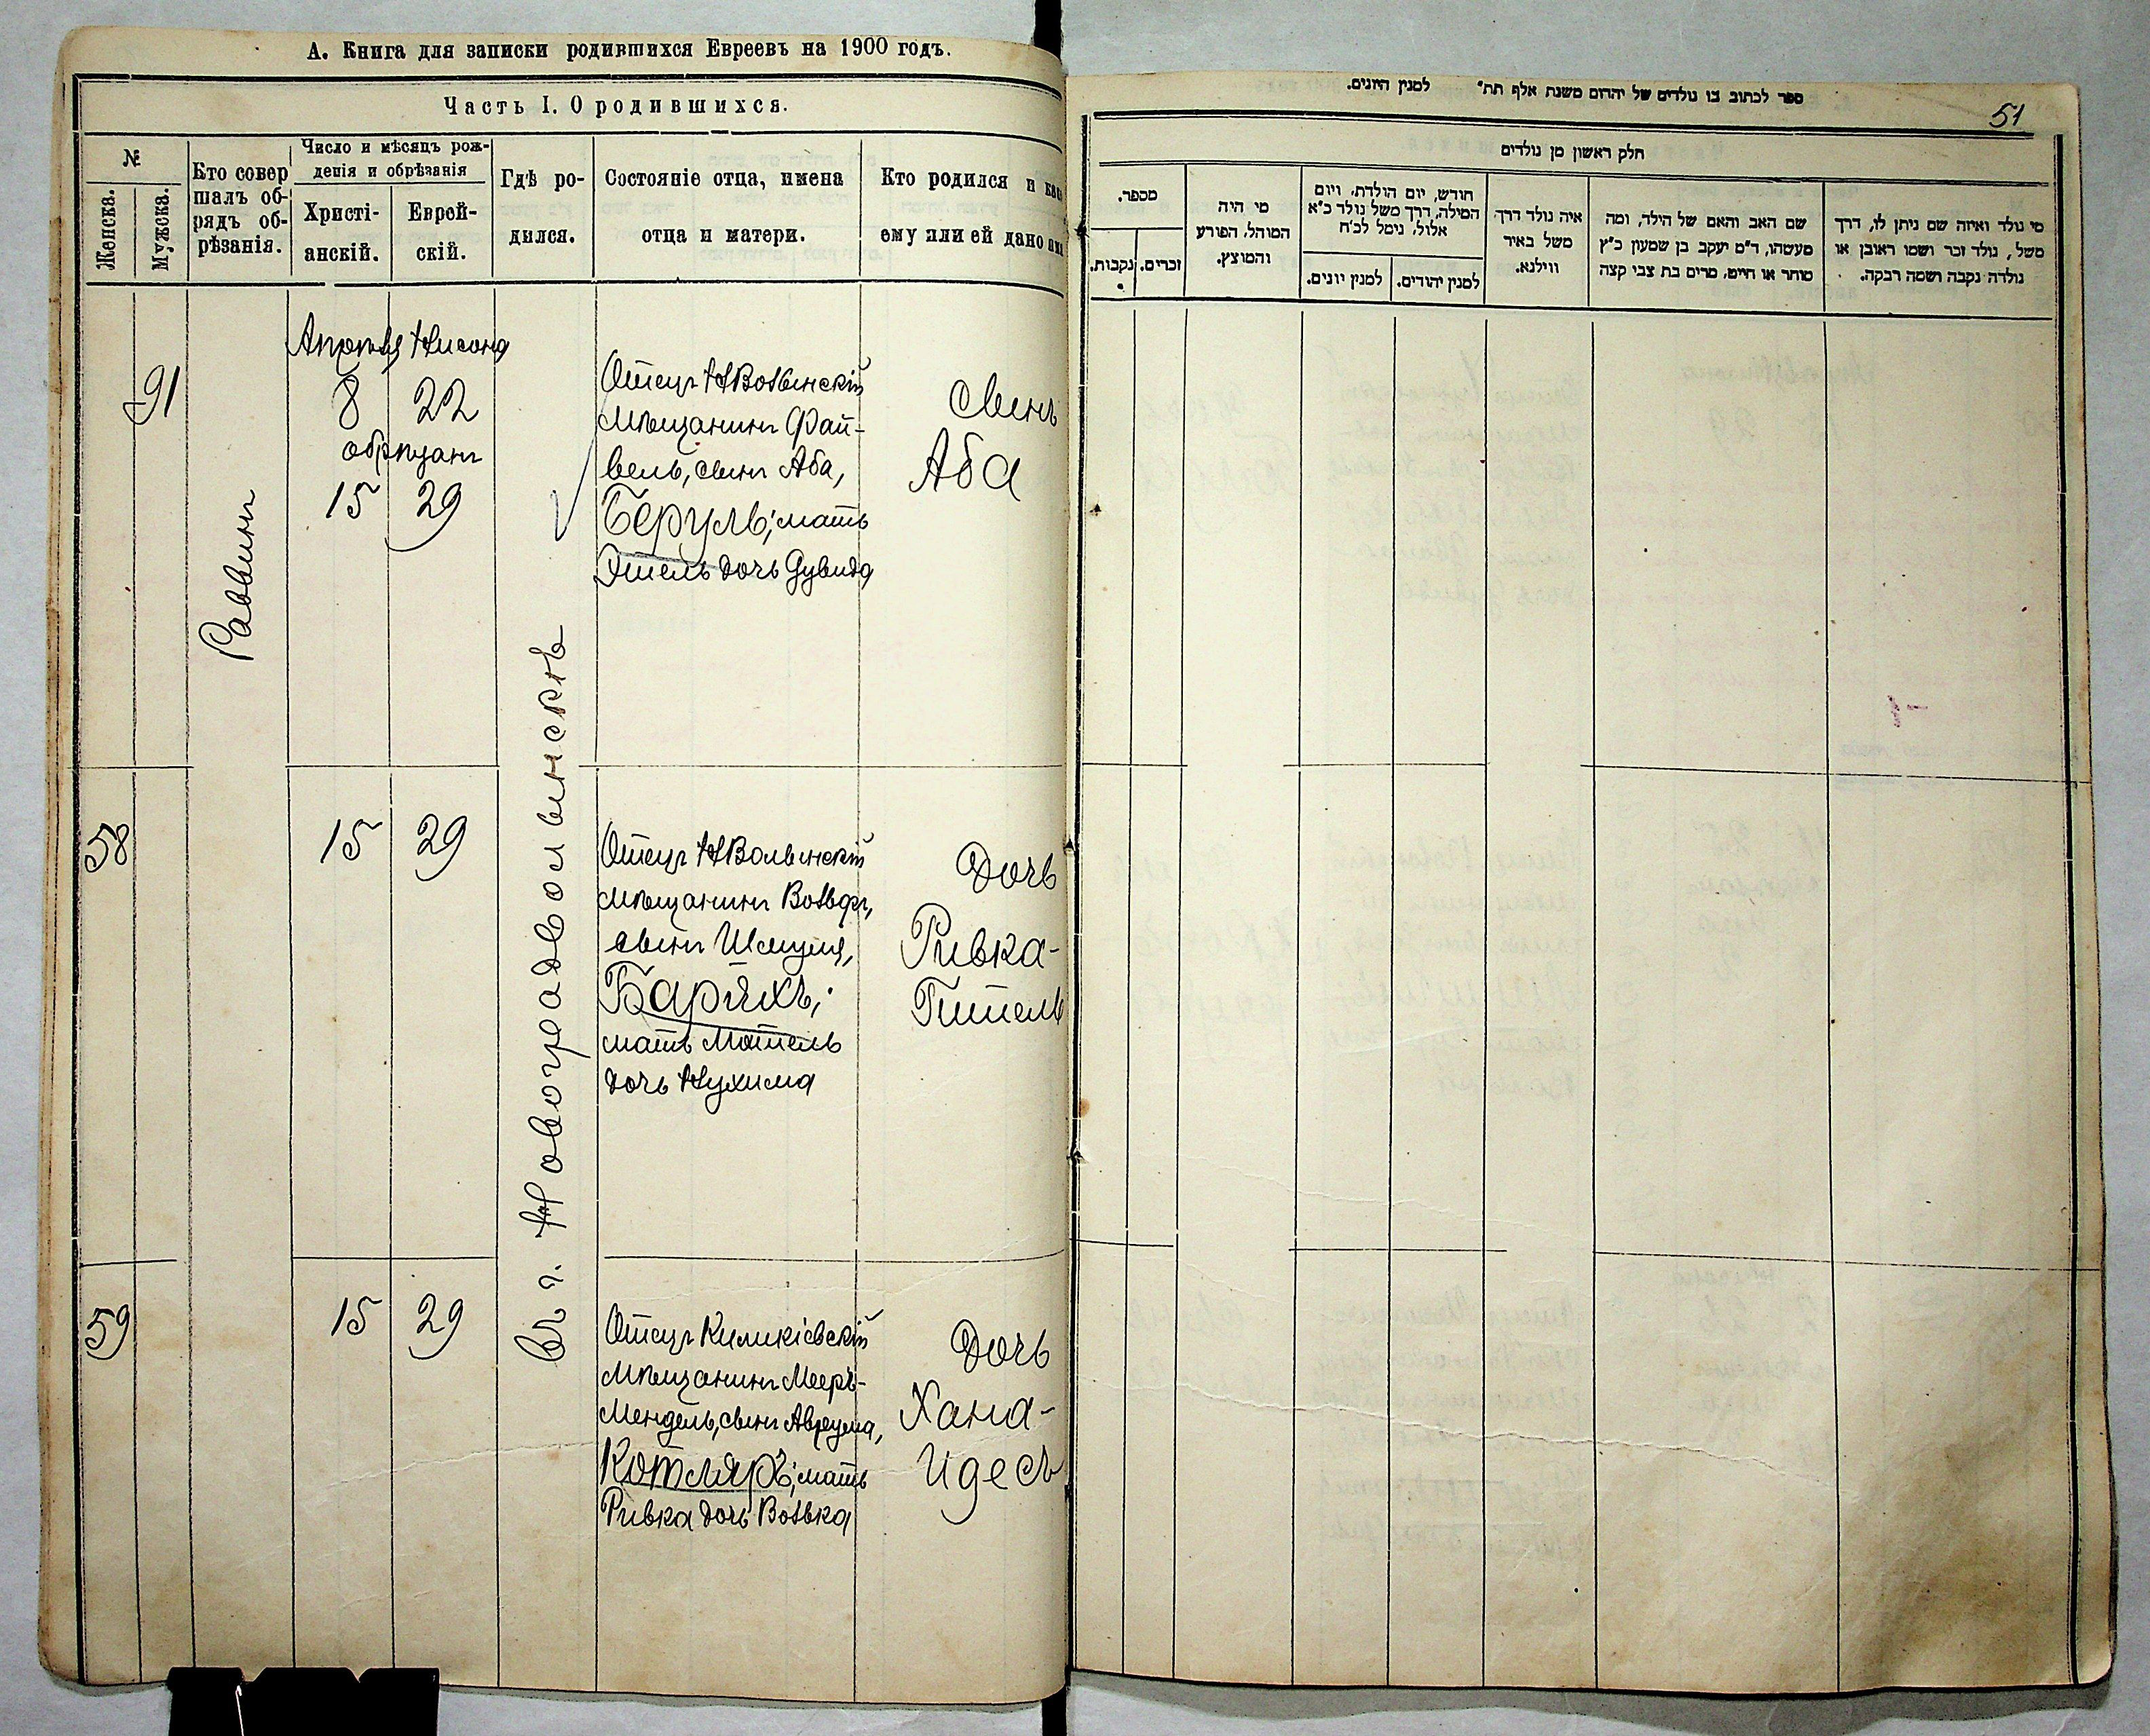 А. Книга для записки родившихся Евреевъ на 1900 годъ.
Часть I. О родившихся.
№
Женска.
Мужска.
Кто совер
шалъ об-
рядъ об-
рѣзанія.
Число и мѣсяцъ рож-
денія и обрѣзанія
Христі-
анскій.
Еврей-
скій.
Гдѣ ро-
дился.
Состояніе отца, имена
отца и матери.
Кто родился и как
ему или ей дано имя
91
Раввинъ
Апрѣля Нисона
8 22
обрѣзанъ
15 29
въ г. Новоградволынскѣ
Отецъ НВолынскій
мѣщанинъ Фай-
вель, сынъ Аба,
Беруль; мать
Этель дочь Дувида
Сынъ
Аба
58
15 29
Отецъ НВолынскій
мѣщанинъ Вольфъ,
сынъ Шмуля,
Баряхъ;
мать Мотель
дочь Нухима
Дочь
Ривка-
Гитель
59
15 29
Отецъ Киликіевскій
мѣщанинъ Мееръ-
Мендель, сынъ Аврума,
Котляръ; мать
Ривка дочь Волька
Дочь
Хана-
Идесъ
ספר לכתוב בו נולדים של יהדים משנת אלף תת״ למנין היונים.
51
חלק ראשון מן נולדים
מספר.
נקבות.
זכרים.
מי היה
המוהל, הפורע
והמוצץ.
חודש, יום הולדת, ויום
המילה, דרך משל נולד כ״א
אלול, נימל לכ״ח
למנין יונים.
למנין יהודים.
איה נולד דרך
משל באיר
ווילנא.
שם האב והאם של הילד, ומה
מעשהו, ד״מ יעקב בן שמעון כ״ץ
סוחר או חייט, מרים בת צבי קצה
מי נולד ואיזה שם ניתן לו, דרך
משל, נולד זכר ושמו ראובן או
נולדה נקבה ושמה רבקה.